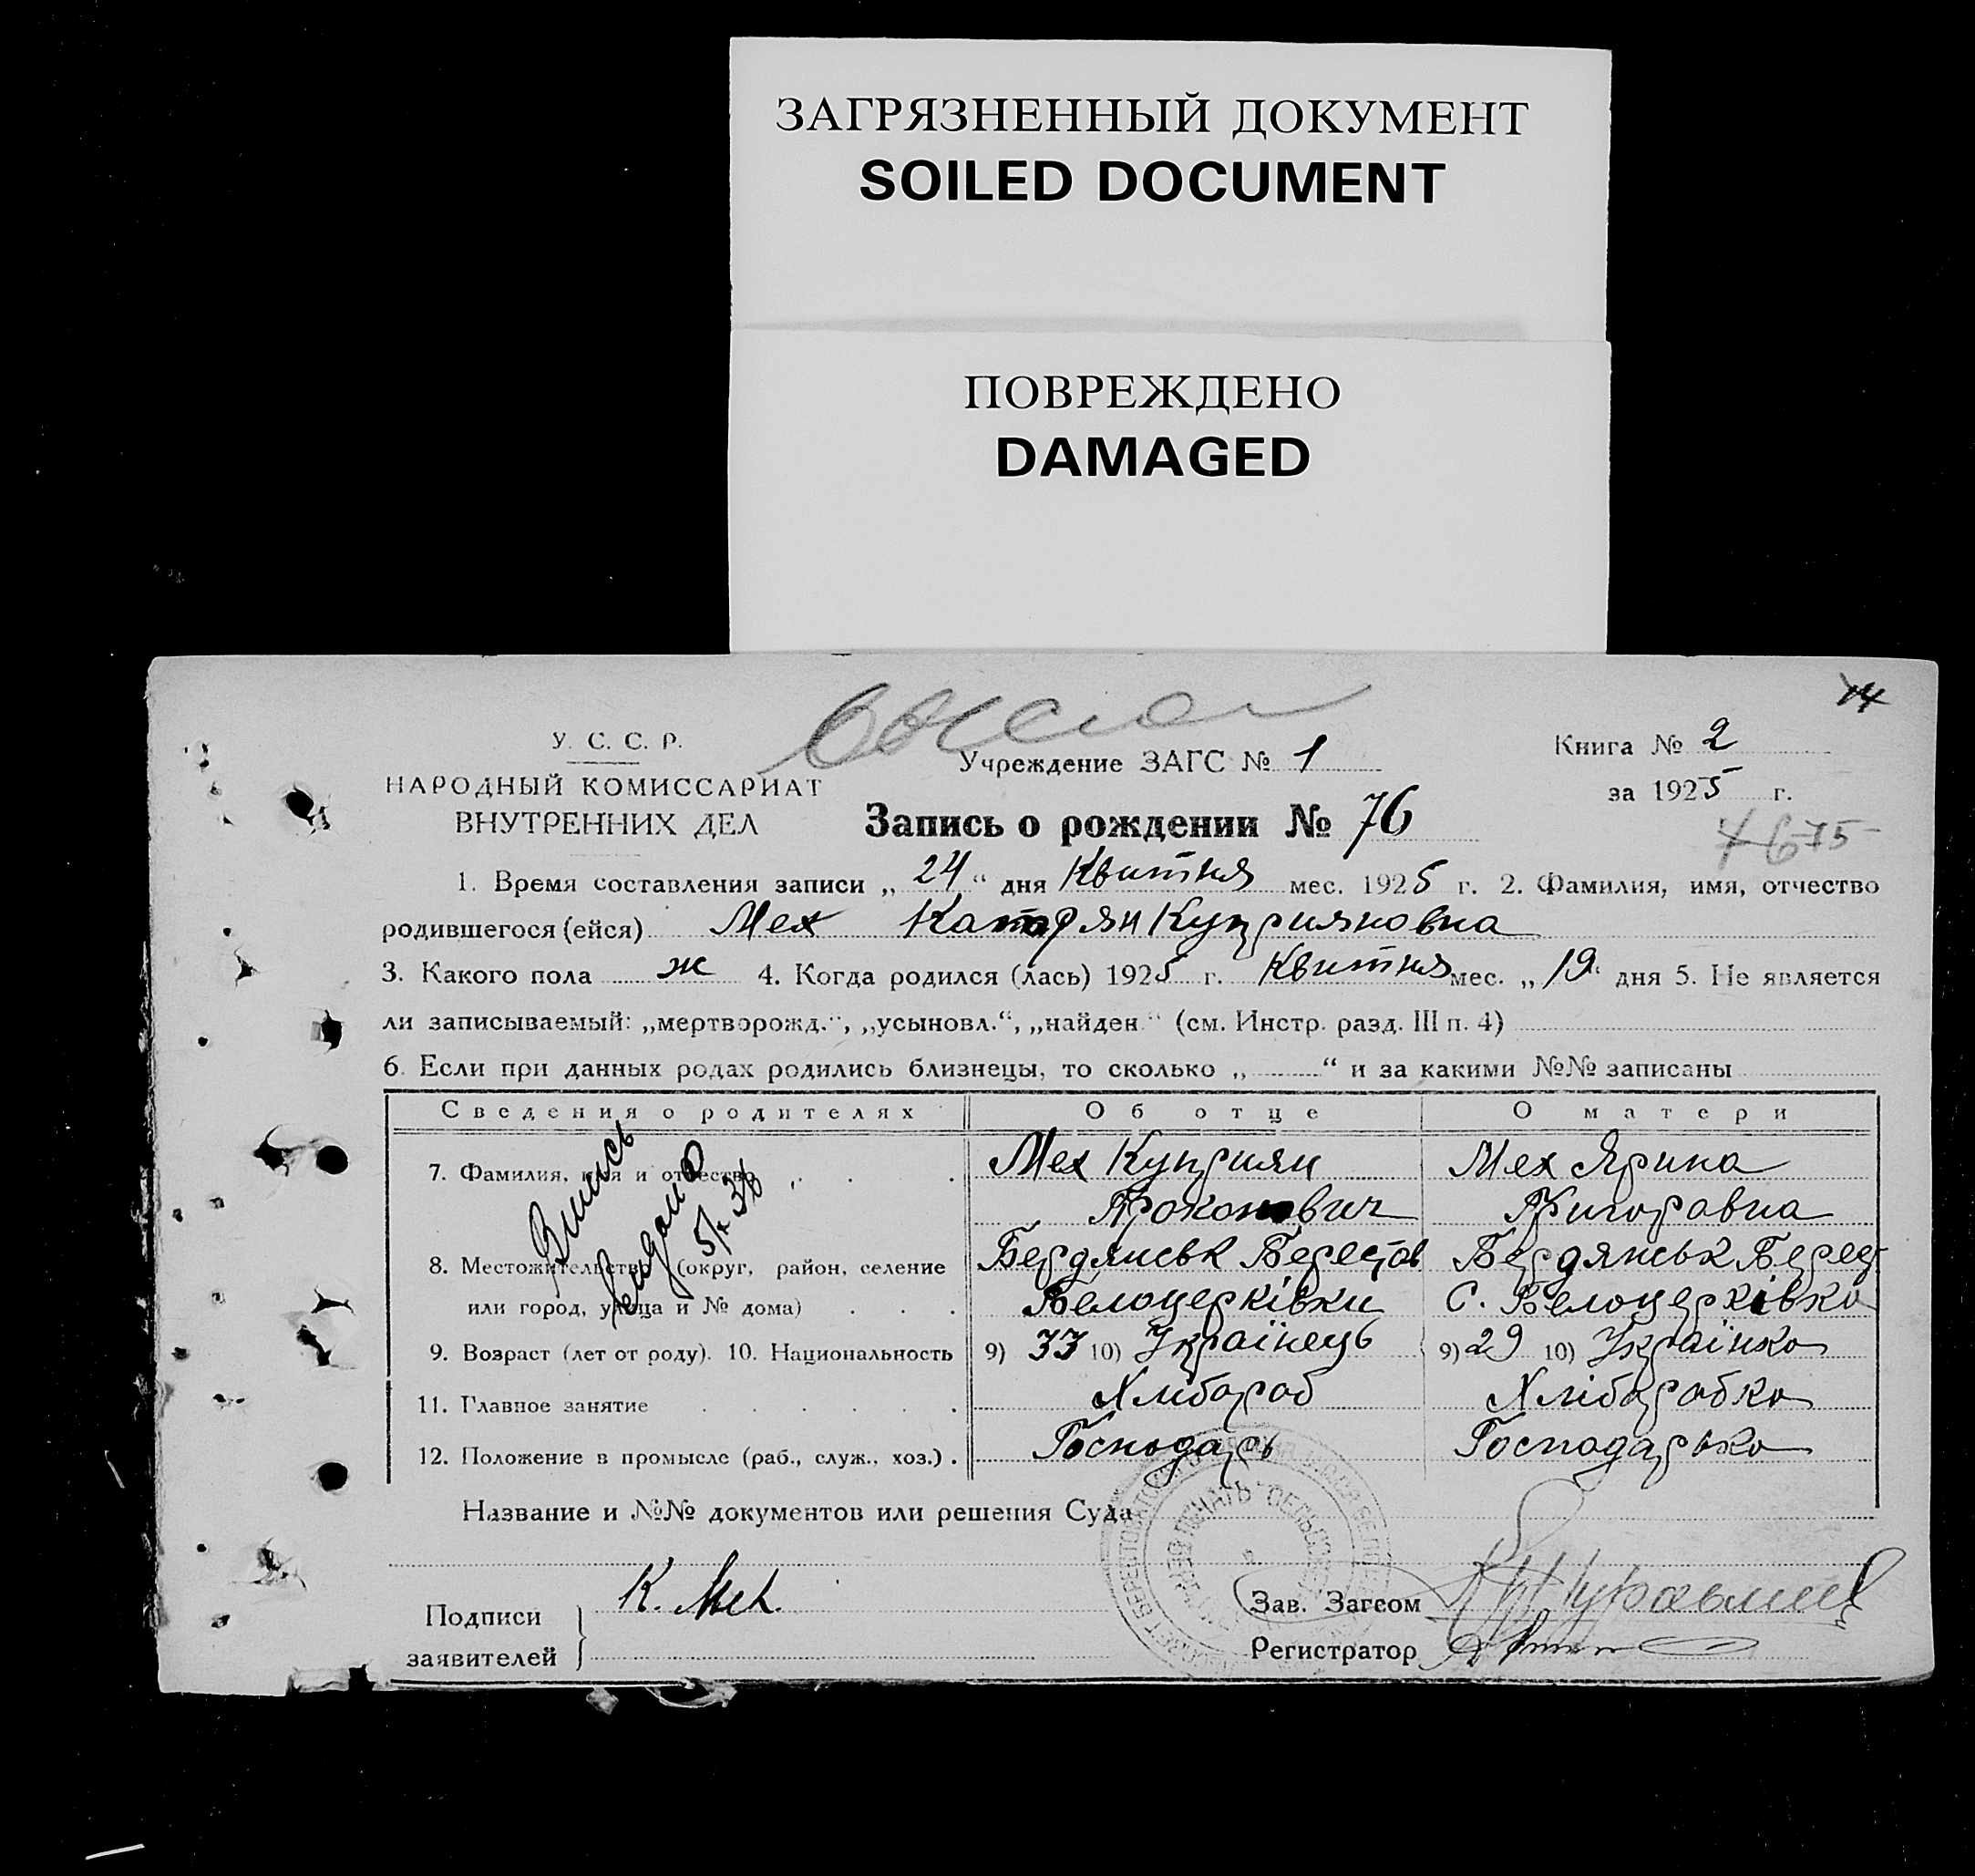 ЗАГРЯЗНЕННЫЙ ДОКУМЕНТ
SOILED DOCUMENT
ПОВРЕЖДЕНО
DAMAGED
14
У. С. С. Р.
НАРОДНЫЙ КОМИССАРИАТ
ВНУТРЕННИХ ДЕЛ
Учреждение ЗАГС № 1
Книга № 2
за 1925 г.
Запись о рождении № 76
75
1. Время составления записи „ 24 “ дня Квитня мес. 1925 г. 2. Фамилия, имя, отчество
родившегося (ейся) Мех Катрян Куприяновна
3. Какого пола ж 4. Когда родился (лась) 1925 г. Квитня мес. „ 19 “ дня 5. Не является
ли записываемый: „мертворожд.“, „усыновл.“, „найден.“ (см. Инстр. разд. III п. 4)
6. Если при данных родах родились близнецы, то сколько „ “ и за какими №№ записаны
Сведения о родителях Об отце О матери
7. Фамилия, имя и отчество Мех Куприян Мех Ярина
Прокопович Григоровна
8. Местожительство (округ, район, селение Бердянськ Берестов Бердянськ Берест
или город, улица и № дома) Белоцерківки С. Белоцерківка
9. Возраст (лет от роду). 10. Национальность 9) 33 10) Українець 9) 29 10) Українка
11. Главное занятие Хлібороб Хліборобка
12. Положение в промысле (раб., служ., хоз.) Господарь Господарька
Випись
видано
Название и №№ документов или решения Суда
Подписи
заявителей
К. Мех.
Зав. Загсом
Регистратор